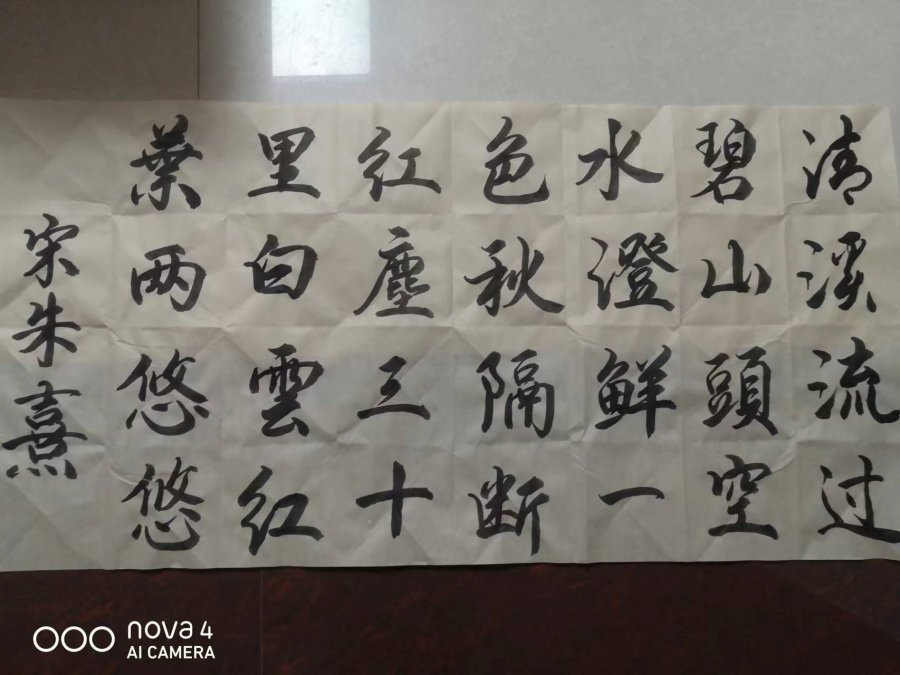 清溪流过
碧山頭空
水澄鮮一
色秋隔断
红塵三十
里白雲红
葉两悠悠
宋朱熹
nova 4
AI CAMERA